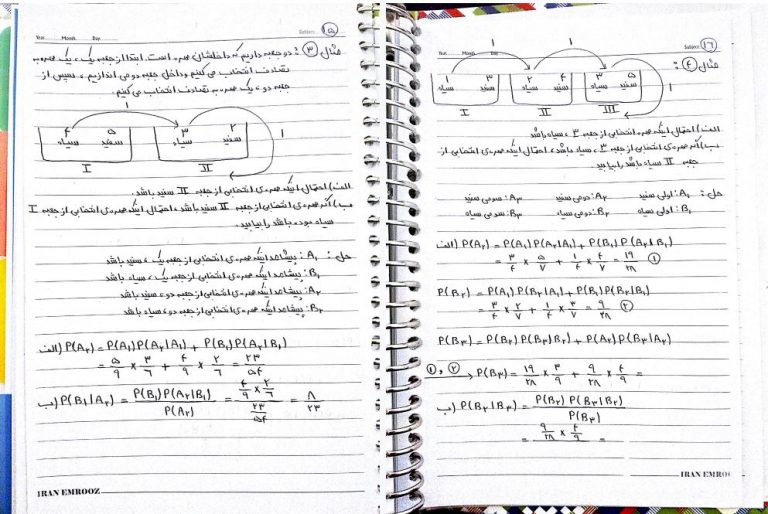 ۱۵
Year. Month. Day. Subject:
مثال ۳: دو جعبه داریم که داخلشان مهره است. ابتدا از جعبه یک، یک مهره به
تصادف انتخاب می کنیم و داخل جعبه دو می اندازیم، سپس از
جعبه دو، یک مهره به تصادف انتخاب می کنیم.
۱
۴ سیاه ۵ سفید ۳ سیاه ۲ سفید ۱
I II
الف) احتمال اینکه مهره ی انتخابی از جعبه II سفید باشد.
ب) اگر مهره ی انتخابی از جعبه II سفید باشد، احتمال اینکه مهره ی انتخابی از جعبه I
سیاه بوده باشد را بیابید.
حل: A₁: پیشامد اینکه مهره ی انتخابی از جعبه یک، سفید باشد
B₁: پیشامد اینکه مهره ی انتخابی از جعبه یک، سیاه باشد
A₂: پیشامد اینکه مهره ی انتخابی از جعبه دو، سفید باشد
B₂: پیشامد اینکه مهره ی انتخابی از جعبه دو، سیاه باشد
الف) P(A₂) = P(A₁)P(A₂|A₁) + P(B₁)P(A₂|B₁)
= ۵/۹ × ۳/۶ + ۴/۹ × ۲/۶ = ۲۳/۵۴
ب) P(B₁|A₂) = P(B₁)P(A₂|B₁)/P(A₂) = (۴/۹ × ۲/۶)/(۲۳/۵۴) = ۸/۲۳
IRAN EMROOZ
۱۶
Year. Month. Day. Subject:
مثال ۴:
۱ ۱
۱ سیاه ۳ سفید ۲ سیاه ۴ سفید ۳ سیاه ۵ سفید ۱
I II III
الف) احتمال اینکه مهره انتخابی از جعبه ۳، سیاه باشد
ب) اگر مهره ی انتخابی از جعبه ۳، سیاه باشد، احتمال اینکه مهره ی انتخابی از
جعبه II سیاه باشد را بیابید
حل: A₁: اولی سفید A₂: دومی سفید A₃: سومی سفید
B₁: اولی سیاه B₂: دومی سیاه B₃: سومی سیاه
الف) P(A₂) = P(A₁)P(A₂|A₁) + P(B₁)P(A₂|B₁)
= ۳/۴ × ۵/۷ + ۱/۴ × ۴/۷ = ۱۹/۲۸ ①
P(B₂) = P(A₁)P(B₂|A₁) + P(B₁)P(B₂|B₁)
= ۳/۴ × ۲/۷ + ۱/۴ × ۳/۷ = ۹/۲۸ ②
P(B₃) = P(B₂)P(B₃|B₂) + P(A₂)P(B₃|A₂)
①,② → P(B₃) = ۱۹/۲۸ × ۳/۹ + ۹/۲۸ × ۴/۹ =
ب) P(B₂|B₃) = P(B₂)P(B₃|B₂)/P(B₃)
= ۹/۲۸ × ۴/۹ =
IRAN EMROO